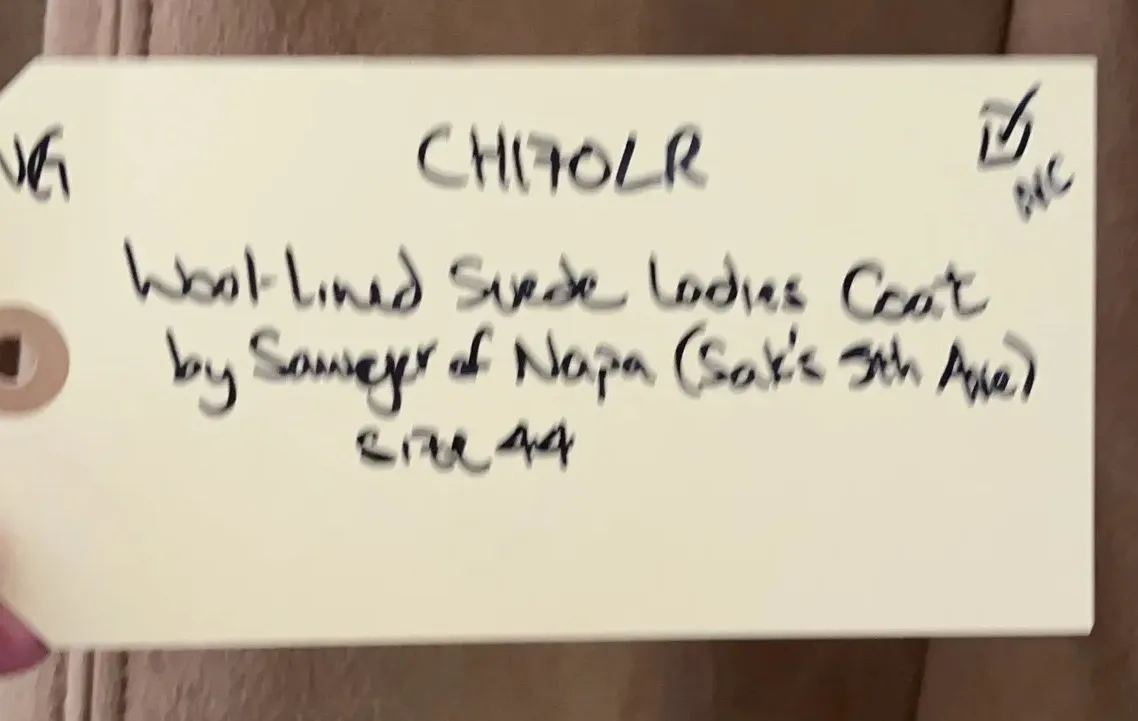 VG
CH170LR
Wool-Lined Suede Ladies Coat
by Sawyer of Napa (Sak's 5th Ave)
size 44